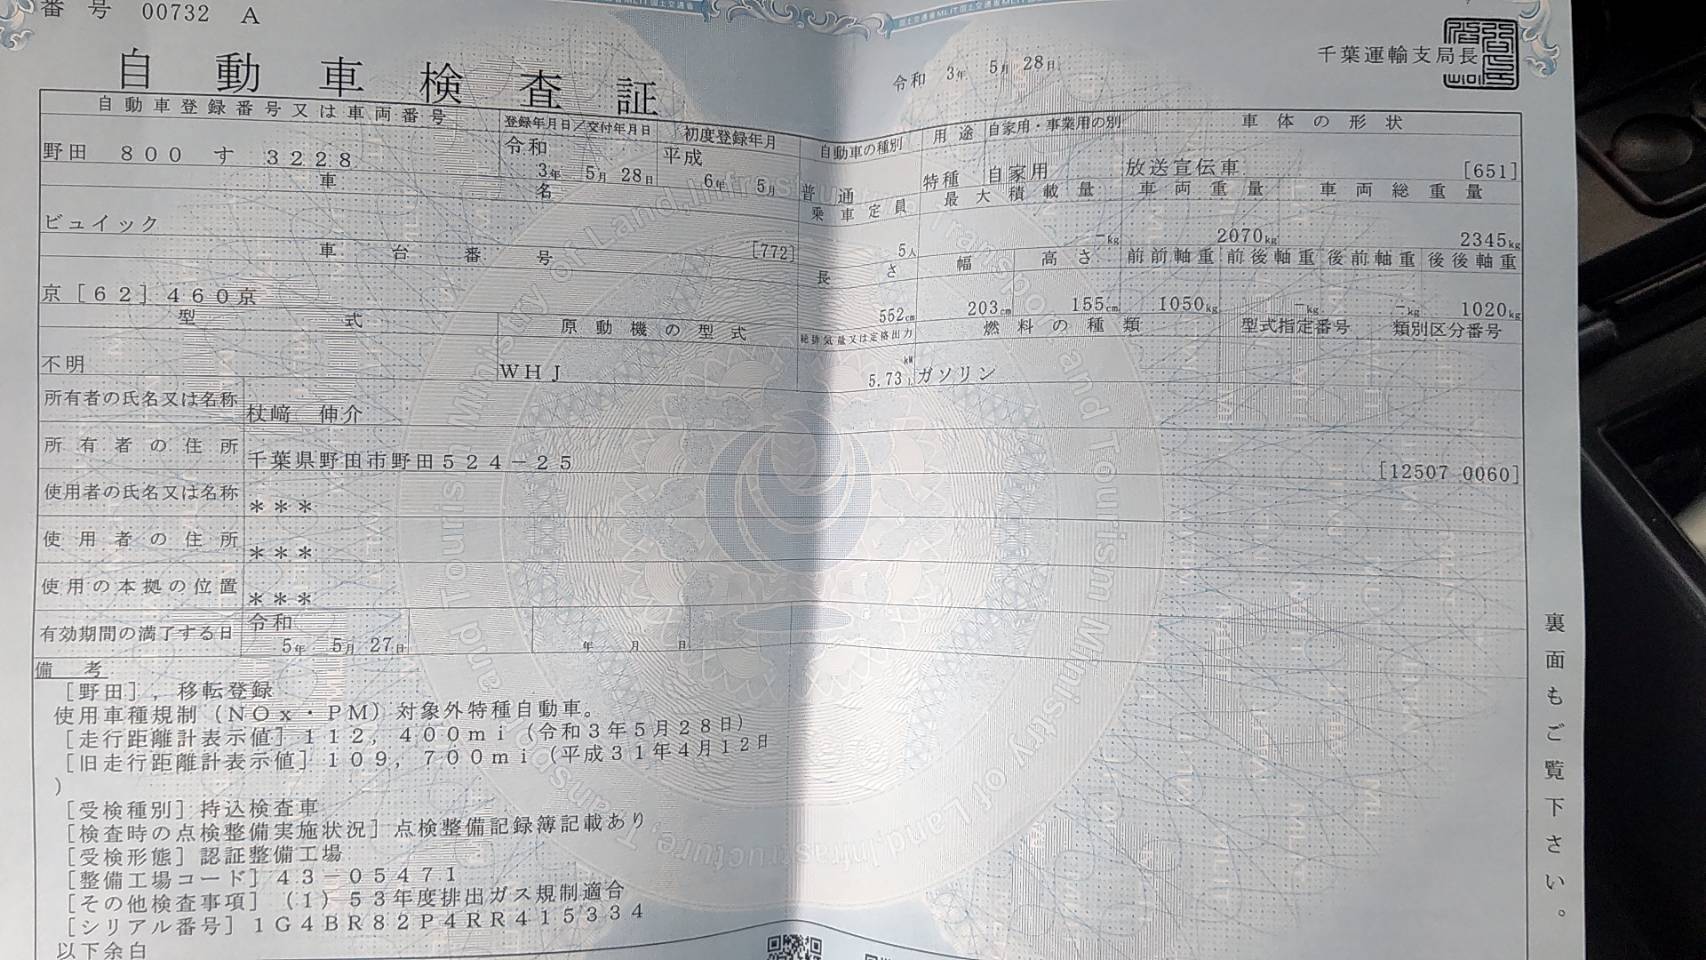 番号 00732 A
国土交通省MLIT国土交通省MLIT国土交通省
自動車検査証
令和 3年 5月 28日
千葉運輸支局長
自動車登録番号又は車両番号
登録年月日／交付年月日
初度登録年月
自動車の種別
用途
自家用・事業用の別
車体の形状
野田 800 す 3228
令和 3年 5月 28日
平成 6年 5月
普通
特種
自家用
放送宣伝車 [651]
車名
乗車定員
最大積載量
車両重量
車両総重量
ビュイック [772]
5人
－kg
2070kg
2345kg
車台番号
長さ
幅
高さ
前前軸重
前後軸重
後前軸重
後後軸重
京［62］460京
552cm
203cm
155cm
1050kg
－kg
－kg
1020kg
型式
原動機の型式
総排気量又は定格出力
燃料の種類
型式指定番号
類別区分番号
不明
WHJ
kW
5.73 L
ガソリン
所有者の氏名又は名称
杖﨑 伸介
所有者の住所
千葉県野田市野田524－25
[12507 0060]
使用者の氏名又は名称
＊＊＊
使用者の住所
＊＊＊
使用の本拠の位置
＊＊＊
有効期間の満了する日
令和 5年 5月 27日
年 月 日
備考
［野田］，移転登録
使用車種規制（NOx・PM）対象外特種自動車。
［走行距離計表示値］112，400mi（令和3年5月28日）
［旧走行距離計表示値］109，700mi（平成31年4月12日
）
［受検種別］持込検査車
［検査時の点検整備実施状況］点検整備記録簿記載あり
［受検形態］認証整備工場
［整備工場コード］43－05471
［その他検査事項］（1）53年度排出ガス規制適合
［シリアル番号］1G4BR82P4RR415334
以下余白
裏面もご覧下さい。
Ministry of Land,Infrastructure,Transport and Tourism